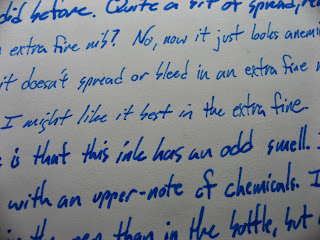 did before. Quite a bit of spread,
extra fine nib? No, now it just looks anemi
it doesn't spread or bleed in an extra fine
I might like it best in the extra fine
is that this ink has an odd smell.
with an upper-note of chemicals. I
in the pen than in the bottle, but